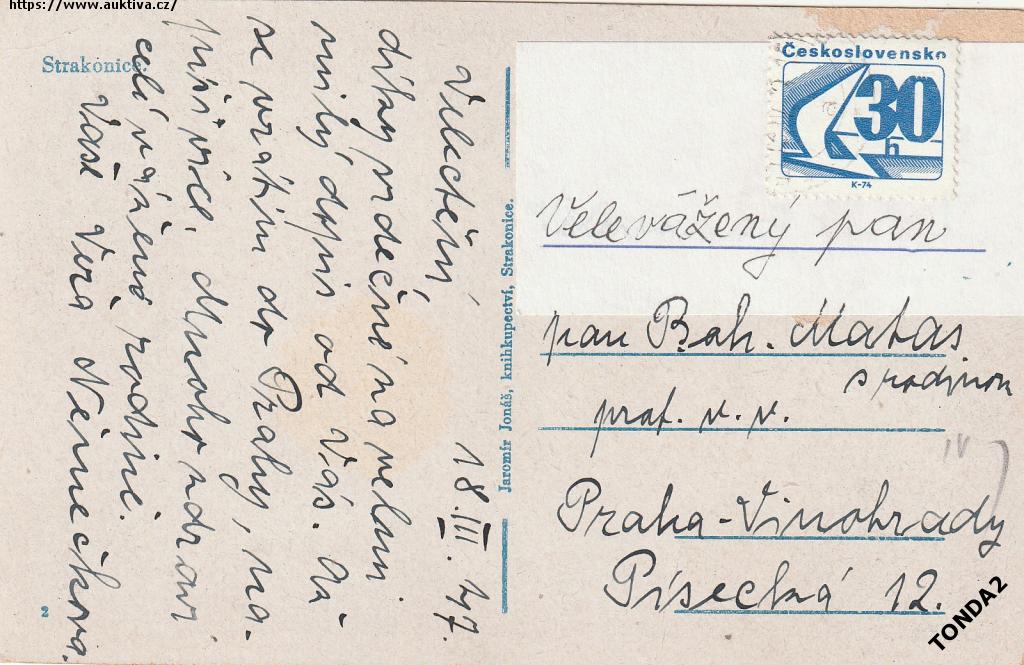 https://www.auktiva.cz/
Strakonice.
Velectění,
díky srdečné na velmi
milý dopis od Vás. Až
se vrátím do Prahy, na-
píši více. Mnoho zdraví
celé vážené rodině.
Vaše Věra Němečkova.
18.III.47.
2
Jaromír Jonáš, knihkupectví, Strakonice.
Československo
30
h
K-74
Velevážený pan
pan Boh. Matas
s rodinou
prof. v. v.
IV
Praha-Vinohrady
Písecká 12.
TONDA2